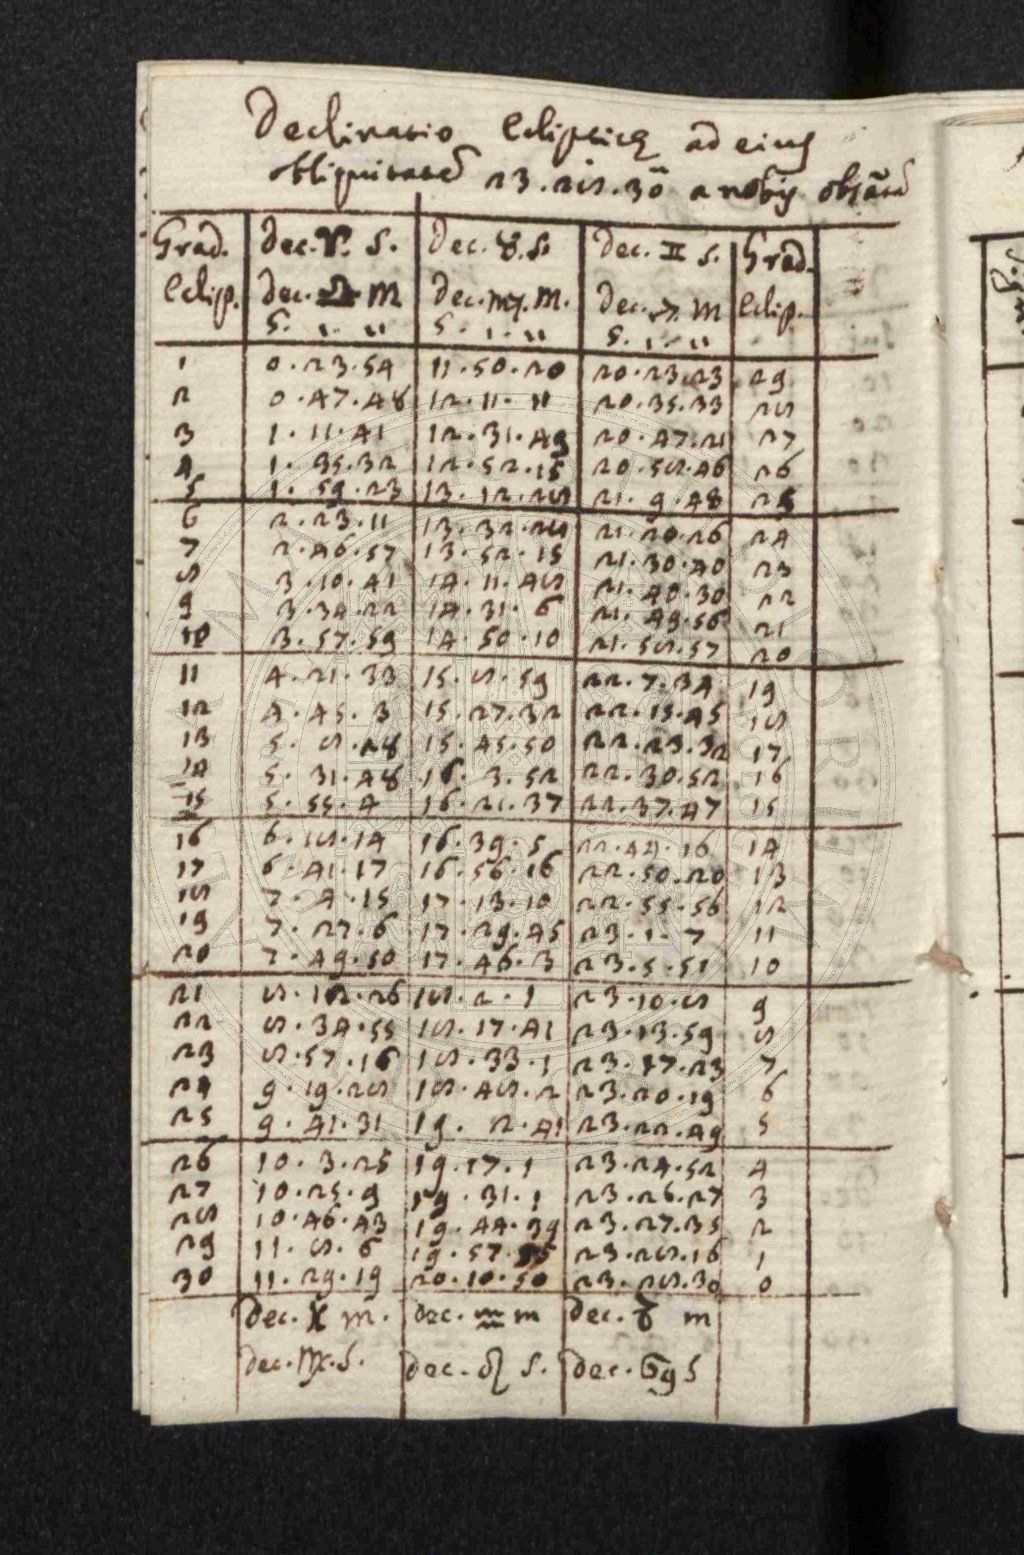 Declinatio Eclipticę ad eius
obliquitatē 23.28.30 a nobis obs̄atā
Grad. Eclip. | dec. ♈ S. dec. ♎ M G. ' " | dec. ♉ S. dec. ♏ M. G. ' " | dec. ♊ S. dec. ♐ M G. ' " | Grad. Eclip.
1 | 0.23.54 | 11.50.20 | 20.23.23 | 29
2 | 0.47.48 | 12.11.11 | 20.35.33 | 28
3 | 1.11.41 | 12.31.49 | 20.47.21 | 27
4 | 1.35.32 | 12.52.15 | 20.58.46 | 26
5 | 1.59.23 | 13.12.28 | 21.9.48 | 25
6 | 2.23.11 | 13.32.28 | 21.20.26 | 24
7 | 2.46.57 | 13.52.15 | 21.30.40 | 23
8 | 3.10.41 | 14.11.48 | 21.40.30 | 22
9 | 3.34.22 | 14.31.6 | 21.49.56 | 21
10 | 3.57.59 | 14.50.10 | 21.58.57 | 20
11 | 4.21.33 | 15.8.59 | 22.7.34 | 19
12 | 4.45.3 | 15.27.32 | 22.15.45 | 18
13 | 5.8.28 | 15.45.50 | 22.23.32 | 17
14 | 5.31.48 | 16.3.52 | 22.30.52 | 16
15 | 5.55.4 | 16.21.37 | 22.37.47 | 15
16 | 6.18.14 | 16.39.5 | 22.44.16 | 14
17 | 6.41.17 | 16.56.16 | 22.50.20 | 13
18 | 7.4.15 | 17.13.10 | 22.55.56 | 12
19 | 7.27.6 | 17.29.45 | 23.1.7 | 11
20 | 7.49.50 | 17.46.3 | 23.5.51 | 10
21 | 8.12.26 | 18.2.1 | 23.10.8 | 9
22 | 8.34.55 | 18.17.41 | 23.13.59 | 8
23 | 8.57.16 | 18.33.1 | 23.17.23 | 7
24 | 9.19.28 | 18.48.2 | 23.20.19 | 6
25 | 9.41.31 | 19.2.41 | 23.22.49 | 5
26 | 10.3.25 | 19.17.1 | 23.24.52 | 4
27 | 10.25.9 | 19.31.1 | 23.26.27 | 3
28 | 10.46.43 | 19.44.39 | 23.27.35 | 2
29 | 11.8.6 | 19.57.55 | 23.28.16 | 1
30 | 11.29.19 | 20.10.50 | 23.28.30 | 0
dec. ♓ m. | dec. ♒ m | dec. ♑ m
dec. ♍. S. | dec. ♌ S. | dec. ♋ S